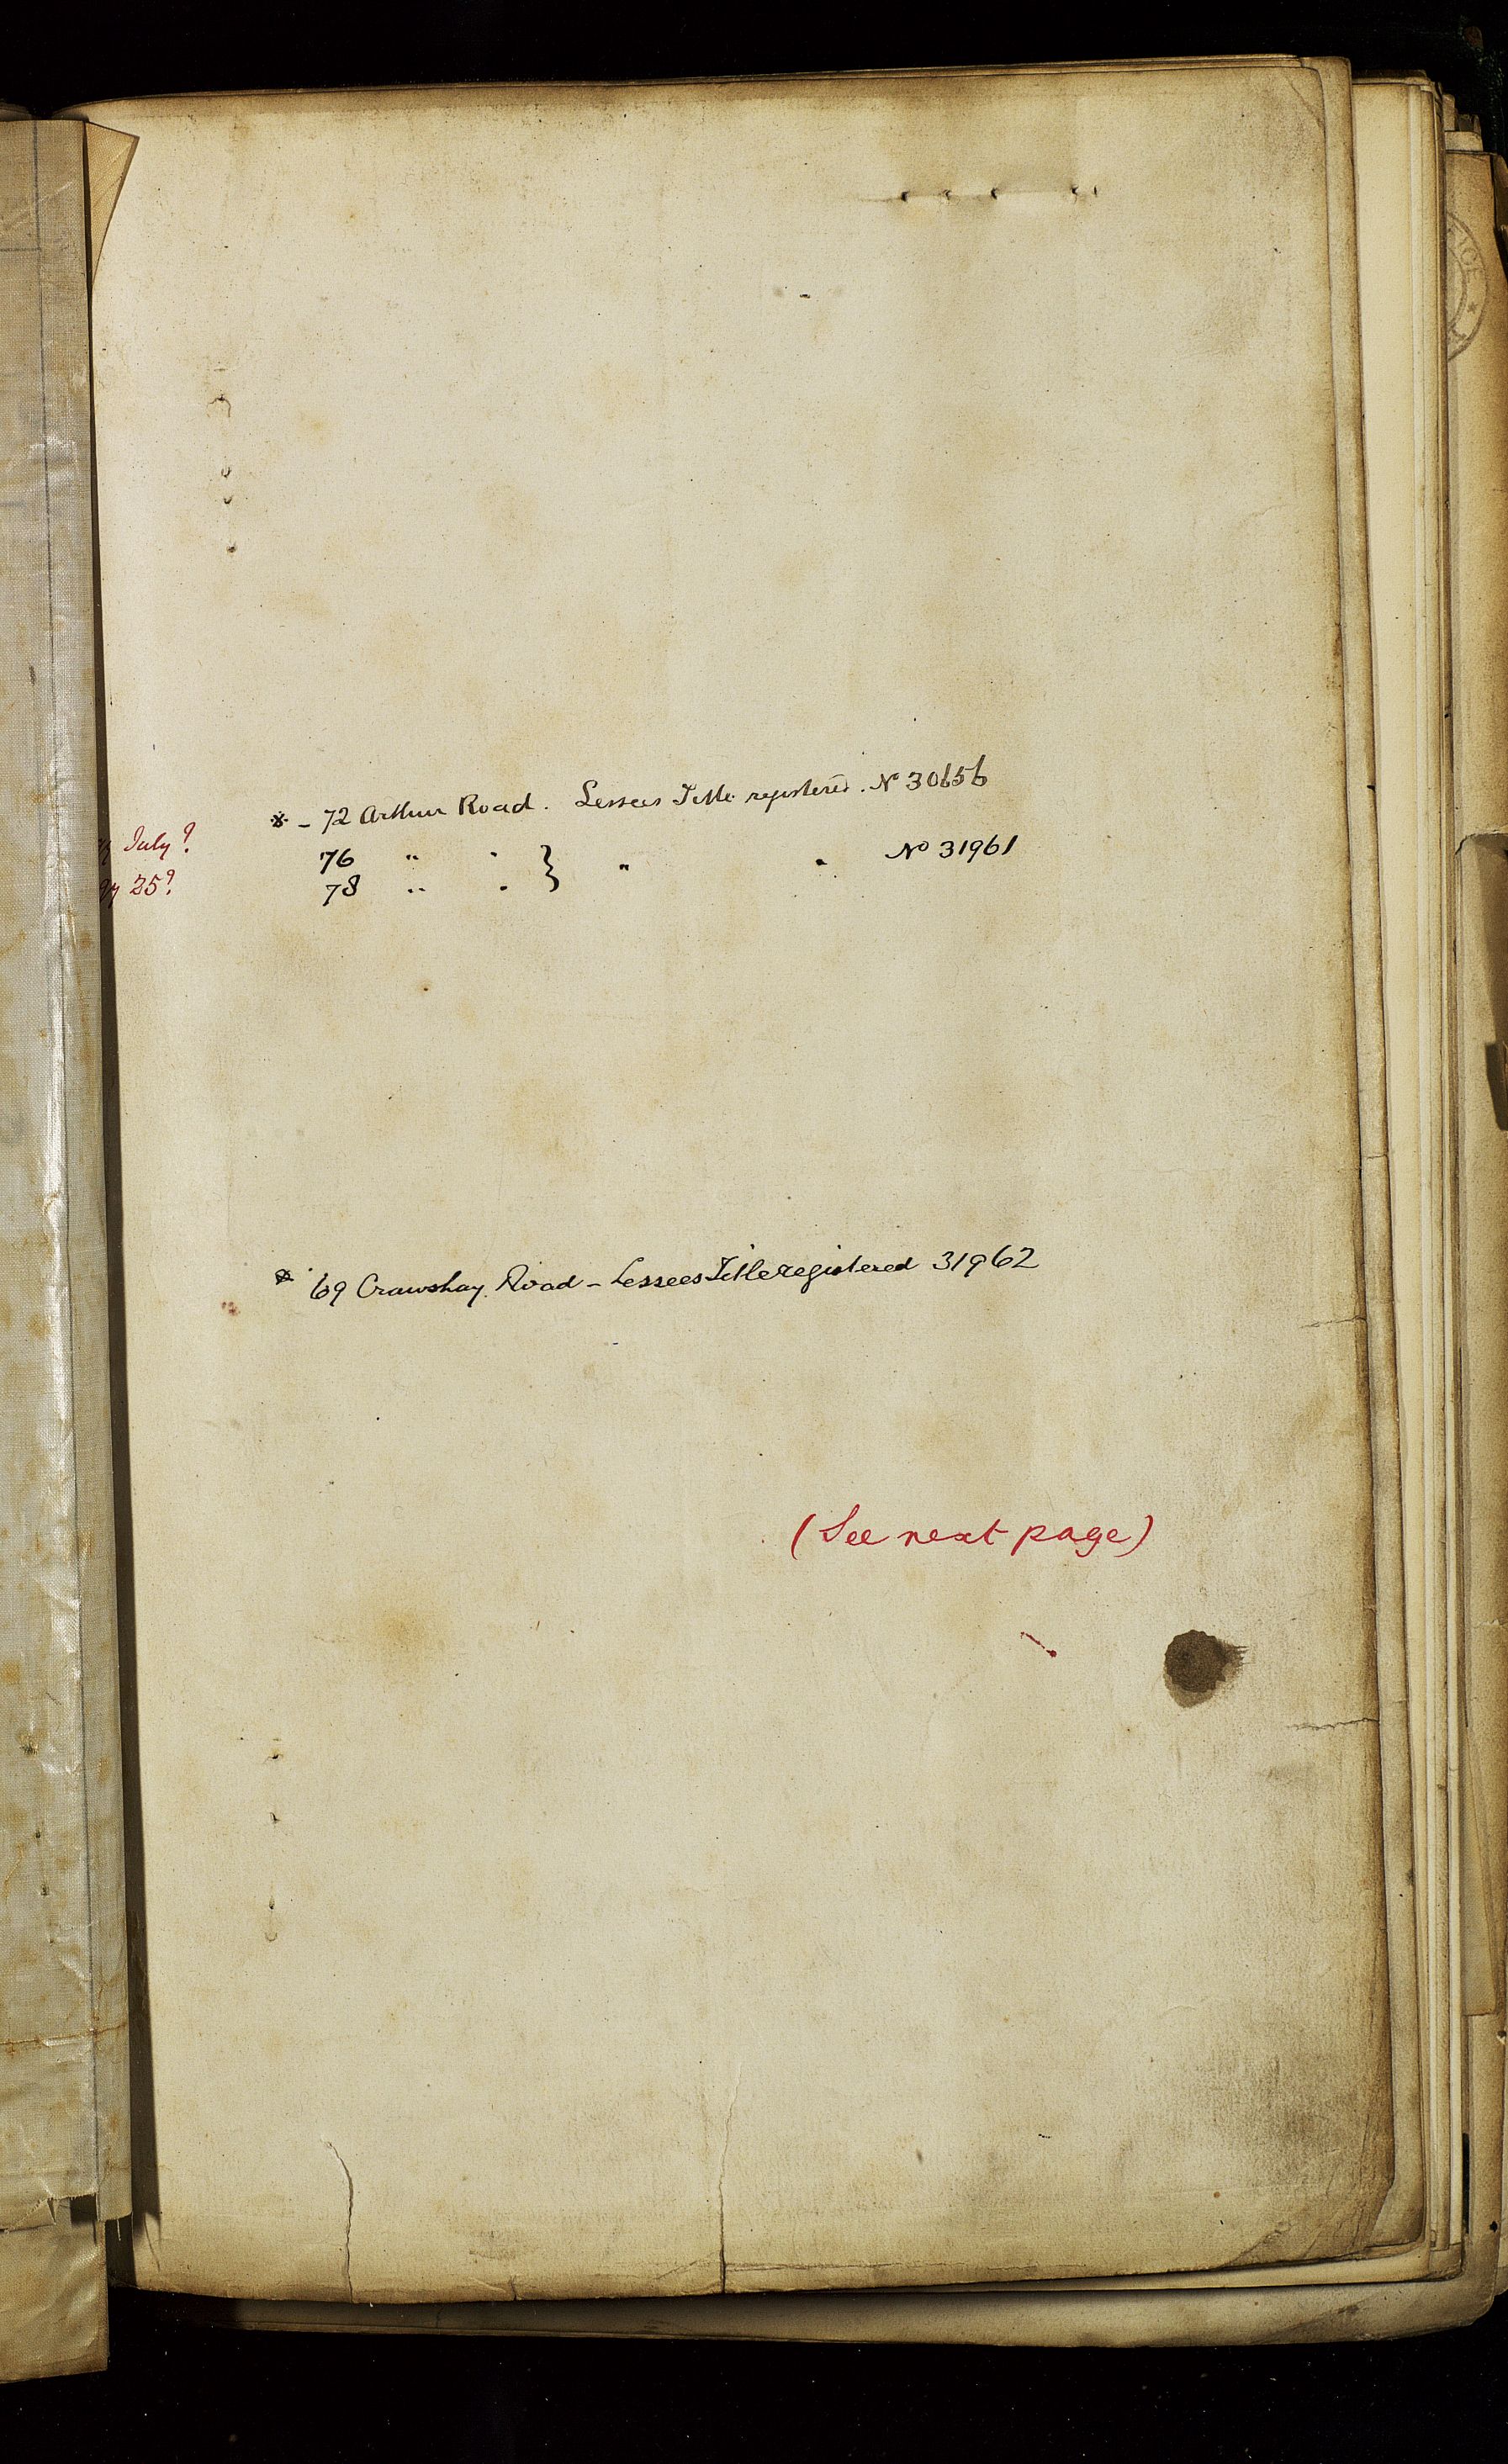 ※ – 72 Arthur Road. Lessees Title registered. No 30656
July?
76 " " } " " No 31961
25?
78 " "
※ 69 Crawshay Road – Lessees Title registered 31962
(See next page)